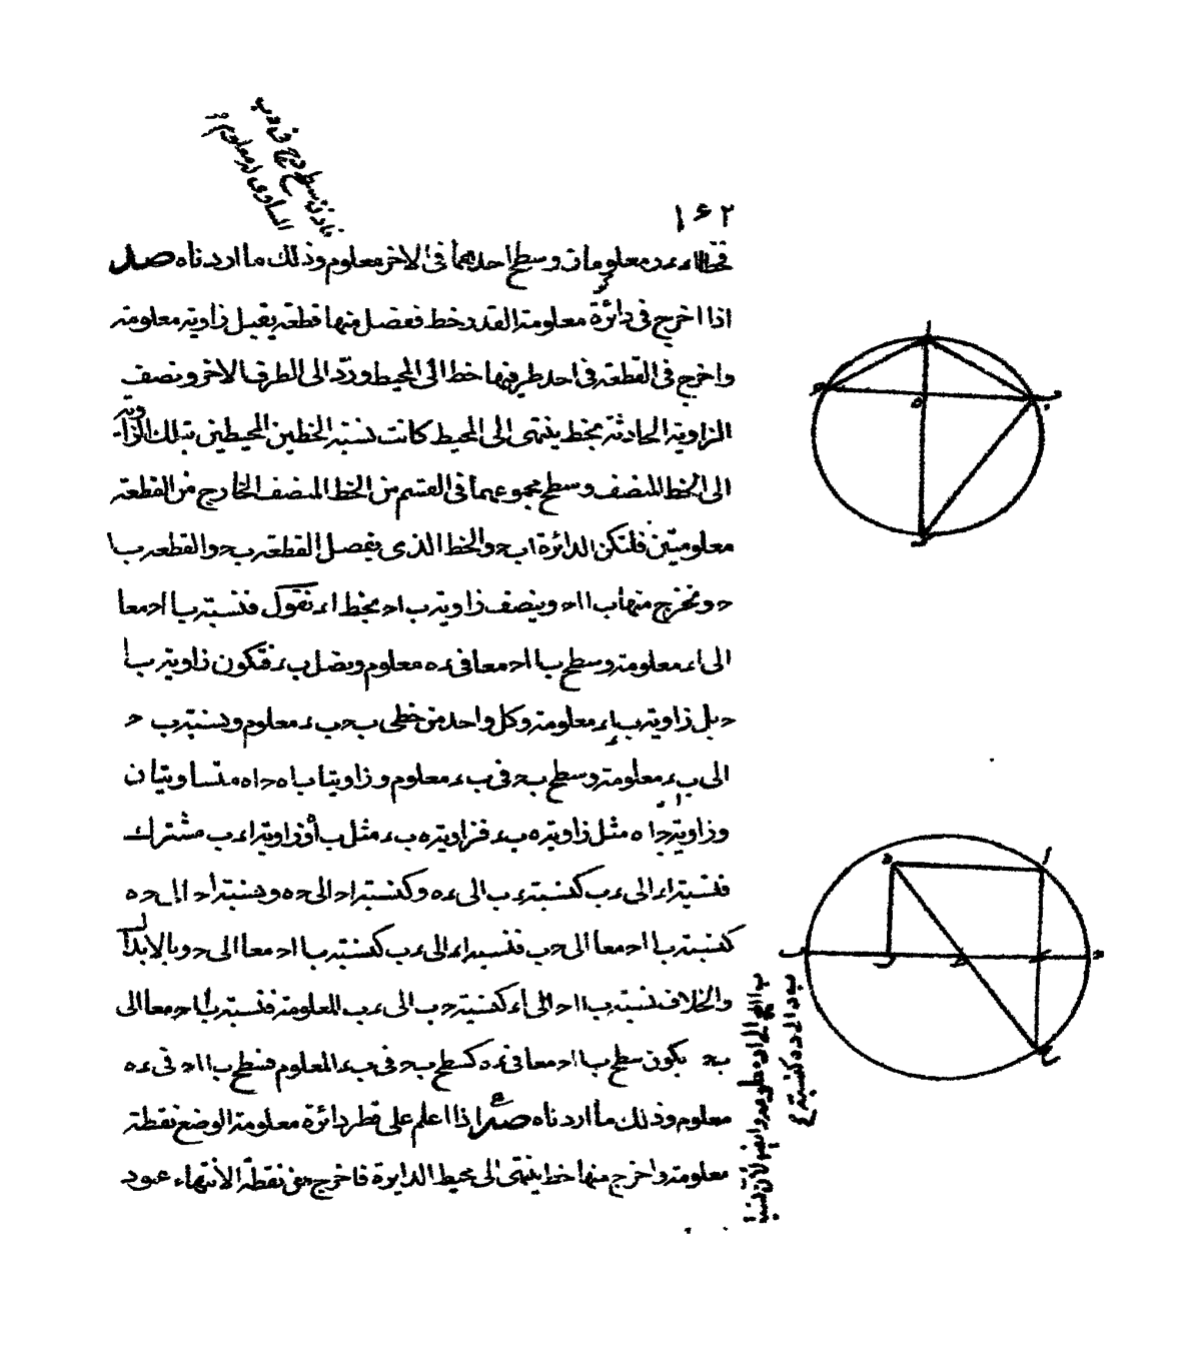 ١٦٢
معلومات وسطح احدهما فى الاخر معلوم وذلك ما اردناه صد
اذا اخرج فى دائرة معلومة القدر خط ففصل منها قطعة يقبل زاوية معلومة
واخرج فى القطعة فى احد طرفيها خط الى المحيط وردّ الى الطرف الاخر ونصف
الزاوية الحادثة بخط ينتهى الى المحيط كانت نسبة الخطين المحيطين بتلك الزاوية
الى الخط المنصف وسطح مجموعهما فى القسم من الخط المنصف الخارج من القطعة
معلومتين فلتكن الدائرة ابحد والخط الذى يفصل القطعة بح والقطعة با
ح ونخرج منها با اح وينصف زاوية باح بخط اء نقول فنسبة با اح معا
الى اء معلومة وسطح با اح معا فى ءه معلوم ونصل بء فتكون زاوية با
ح بل زاوية باء معلومة وكل واحد من خطى بح بء معلوم ونسبة ب ح
الى بء معلومة وسطح بح فى بء معلوم وزاويتا باه حاه متساويتان
وزاوية حاه مثل زاوية ه بء فزاوية ه بء مثل باه وزاوية اءب مشترك
فنسبة اء الى ءب كنسبة ءب الى ءه وكنسبة اح الى حه ونسبة اح الى حه
كنسبة با اح معا الى حب فنسبة اء الى ءب كنسبة با اح معا الى حب وبالابدال
والخلاف نسبة با اح الى اء كنسبة حب الى ءب المعلومة فنسبة با اح معا الى
بح يكون سطح با اح معا فى ءه كسطح بح فى بء المعلوم فسطح با اح فى ءه
معلوم وذلك ما اردناه صه اذا اعلم على قطر دائرة معلومة الوضع نقطة
معلومة واخرج منها خط ينتهى الى محيط الدايرة فاخرج من نقطة الانتهاء عمود